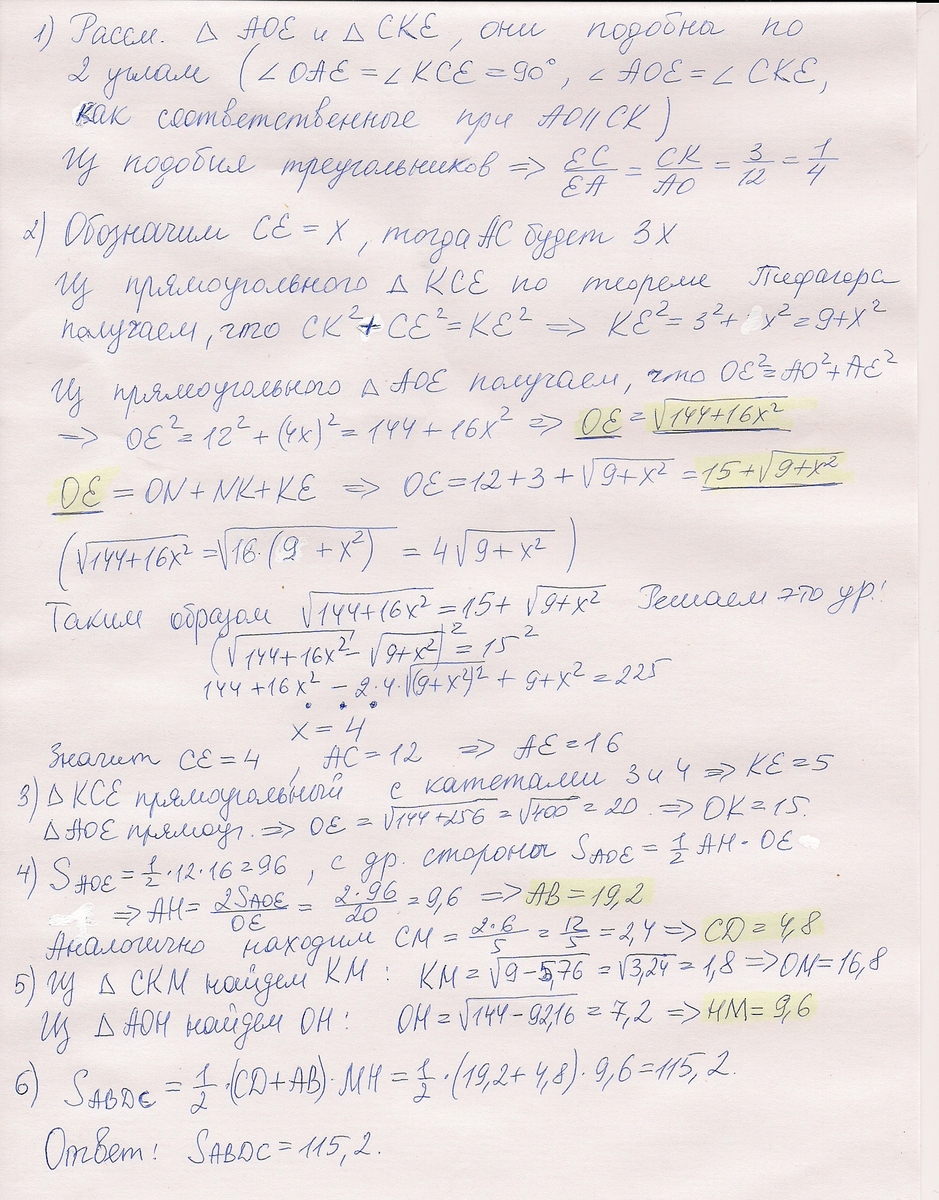 1) Рассм. △ AOE и △ CKE, они подобны по
2 углам (∠OAE = ∠KCE = 90°, ∠AOE = ∠CKE,
как соответственные при AO∥CK)
Из подобия треугольников ⇒ EC/EA = CK/AO = 3/12 = 1/4
2) Обозначим CE = x, тогда AC будет 3x
Из прямоугольного △ KCE по теореме Пифагора
получаем, что CK² + CE² = KE² ⇒ KE² = 3² + x² = 9+x²
Из прямоугольного △ AOE получаем, что OE² = AO² + AE²
⇒ OE² = 12² + (4x)² = 144 + 16x² ⇒ OE = √(144+16x²)
OE = ON + NK + KE ⇒ OE = 12 + 3 + √(9+x²) = 15+√(9+x²)
(√(144+16x²) = √(16·(9+x²)) = 4√(9+x²))
Таким образом √(144+16x²) = 15+ √(9+x²) Решаем это ур!
(√(144+16x²) - √(9+x²))² = 15²
144 + 16x² - 2·4·√(9+x²)² + 9+x² = 225
• • •
x = 4
Значит CE = 4, AC = 12 ⇒ AE = 16
3) △ KCE прямоугольный с катетами 3 и 4 ⇒ KE = 5
△ AOE прямоуг. ⇒ OE = √(144+256) = √400 = 20 ⇒ OK = 15.
4) S_AOE = 1/2 · 12 · 16 = 96, с др. стороны S_AOE = 1/2 AH · OE
⇒ AH = 2S_AOE/OE = 2·96/20 = 9,6 ⇒ AB = 19,2
Аналогично находим CM = 2·6/5 = 12/5 = 2,4 ⇒ CD = 4,8
5) Из △ CKM найдем KM: KM = √(9-5,76) = √3,24 = 1,8 ⇒ OM = 16,8
Из △ AOH найдем OH: OH = √(144-92,16) = 7,2 ⇒ HM = 9,6
6) S_ABDC = 1/2 · (CD+AB) · MH = 1/2 · (19,2 + 4,8) · 9,6 = 115,2.
Ответ: S_ABDC = 115,2.